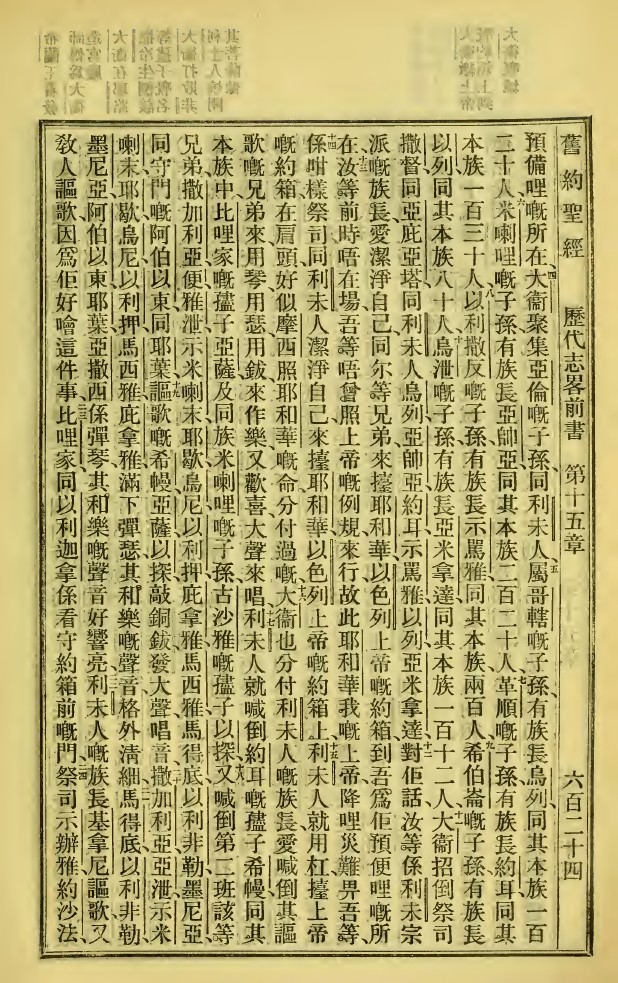 舊約聖經 歷代志畧前書 第十五章 六百二十四
預備哩嘅所在、四大衛聚集亞倫嘅子孫同利未人、五屬哥轄嘅子孫有族長烏列同其本族一百
二十人、六米喇哩嘅子孫有族長亞帥亞同其本族二百二十人、七革順嘅子孫有族長約耳同其
本族一百三十人、八以利撒反嘅子孫有族長示罵雅同其本族兩百人、九希伯崙嘅子孫有族長
以列同其本族八十人、十烏泄嘅子孫有族長亞米拿達同其本族一百十二人、十一大衛招倒祭司
撒督同亞庇亞塔同利未人烏列亞帥亞約耳示罵雅以列亞米拿達、十二對佢話汝等係利未宗
派嘅族長愛潔淨自己同尔等兄弟來擡耶和華以色列上帝嘅約箱到吾爲佢預便哩嘅所
在、十三汝等前時唔在場吾等唔曾照上帝嘅例規來行故此耶和華我嘅上帝降哩災難畀吾等、
十四係咁樣祭司同利未人潔淨自己來擡耶和華以色列上帝嘅約箱、十五利未人就用杠擡上帝
嘅約箱在肩頭好似摩西照耶和華嘅命分付過嘅、十六大衛也分付利未人嘅族長愛喊倒其謳
歌嘅兄弟來用琴用瑟用鈸來作樂又歡喜大聲來唱、十七利未人就喊倒約耳嘅子希幔同其
本族中比哩家嘅子亞薩及同族米喇哩嘅子孫古沙雅嘅子以探、十八又喊倒第二班該等
兄弟撒加利亞便雅泄示米喇末耶歇烏尼以利押庇拿雅馬西雅馬得底以利非勒墨尼亞
同守門嘅阿伯以東同耶葉、十九謳歌嘅希幔亞薩以探敲銅鈸發大聲唱音、二十撒加利亞亞泄示米
喇末耶歇烏尼以利押馬西雅庇拿雅滿下彈瑟其和樂嘅聲音格外清細、馬得底以利非勒
墨尼亞阿伯以東耶葉亞撒西係彈琴其和樂嘅聲音好響亮、利未人嘅族長基拿尼謳歌又
敎人謳歌因爲佢好噲這件事、比哩家同以利迦拿係看守約箱前嘅門、祭司示辦雅約沙法